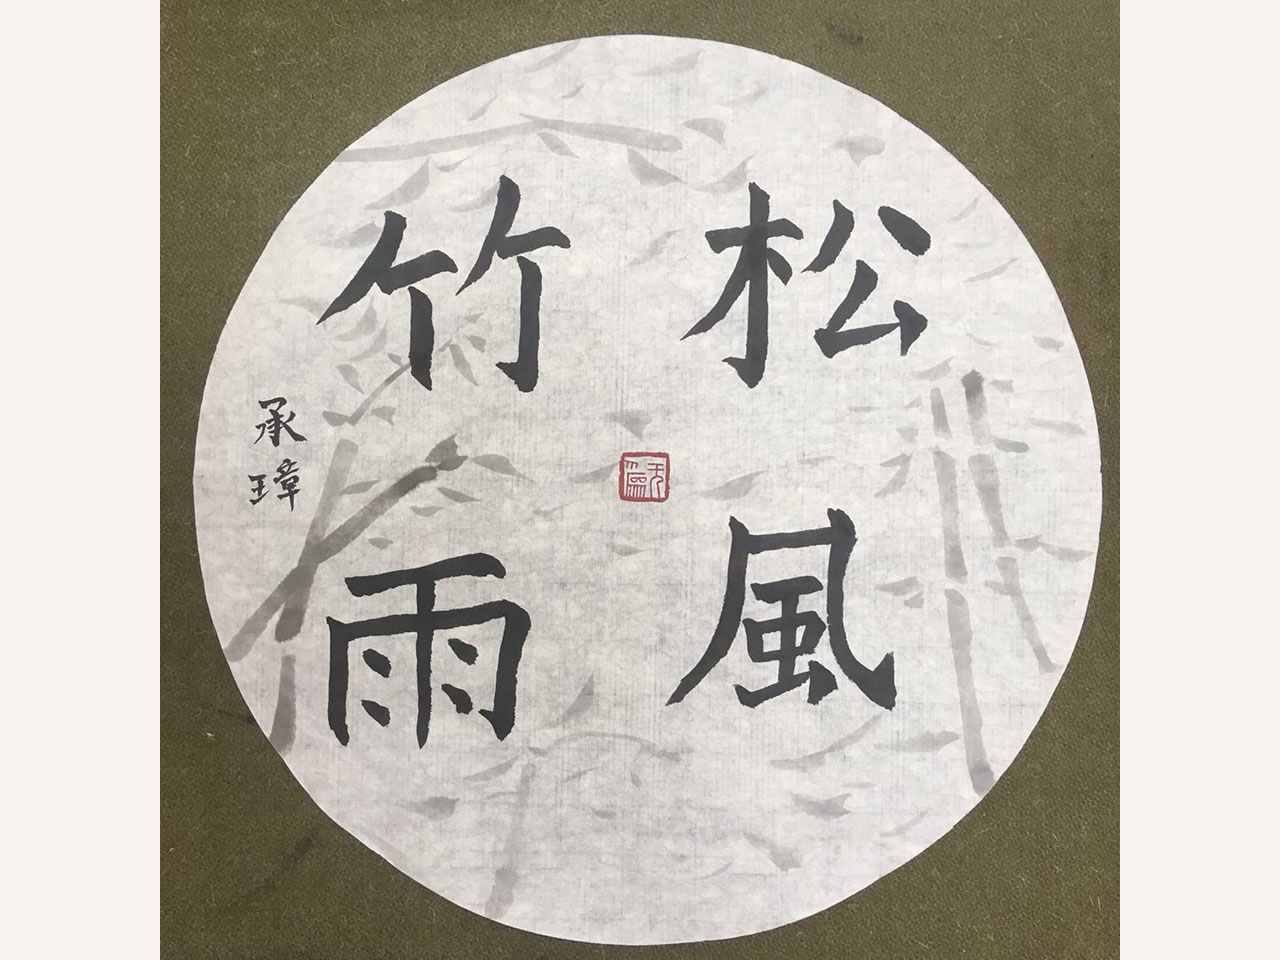 松風
竹雨
承璋